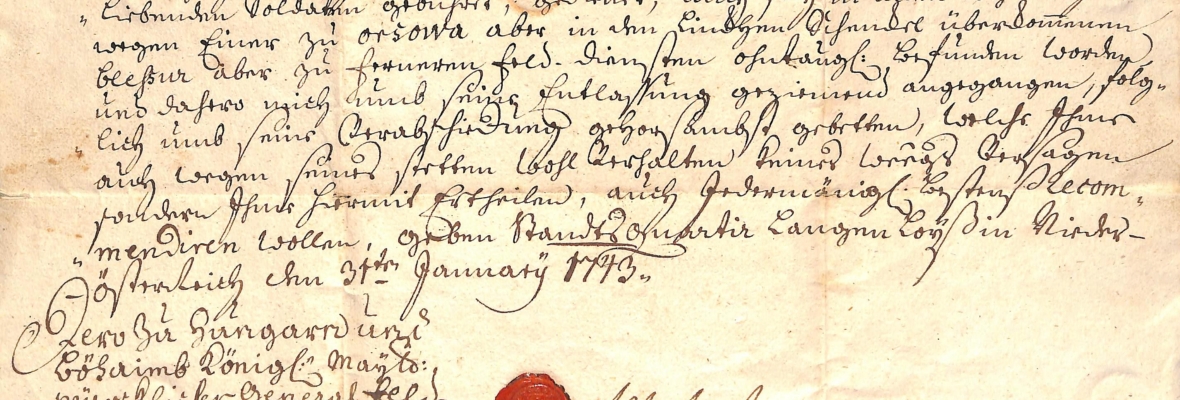 "liebenden Soldaten gebühret,
wegen Einer zu orsowa aber in den Lincken Schenckel überkommenen
blessur aber zu ferneren Feld-diensten ohntaugl: befunden worden,
und dahero mich umb seine Entlassung geziemend angegangen, folg-
lich umb seine Verabschiedung gehorsambst gebetten, welche Ihme
auch wegen seines stetten wohl Verhalten keines weegs Versagen
sondern Ihme hiermit Ertheilen, auch Jedermänigl: bestens Recom-
"mendiren wollen, geben Standts Quartir Langen Loyß in Nieder-
österreich den 31ten January 1743.
Dero Zu Hungarn und
Böhaimb Königl: Mayt:
General Feld